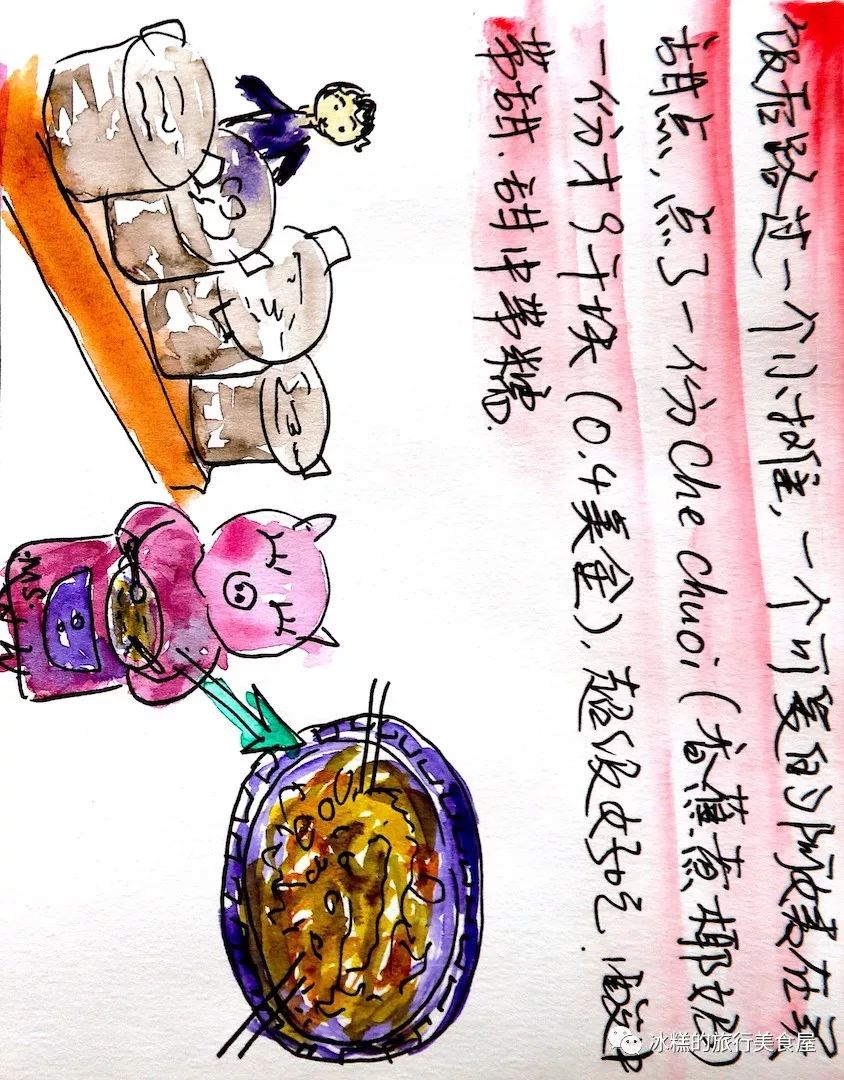 饭后路过一个小摊,一个可爱的阿婆在卖
甜点,点了一份Che chuoi(香蕉煮椰奶)
一份才9千块(0.4美金),超级好吃.酸中
带甜.甜中带糯.
MS.
冰糕的旅行美食屋